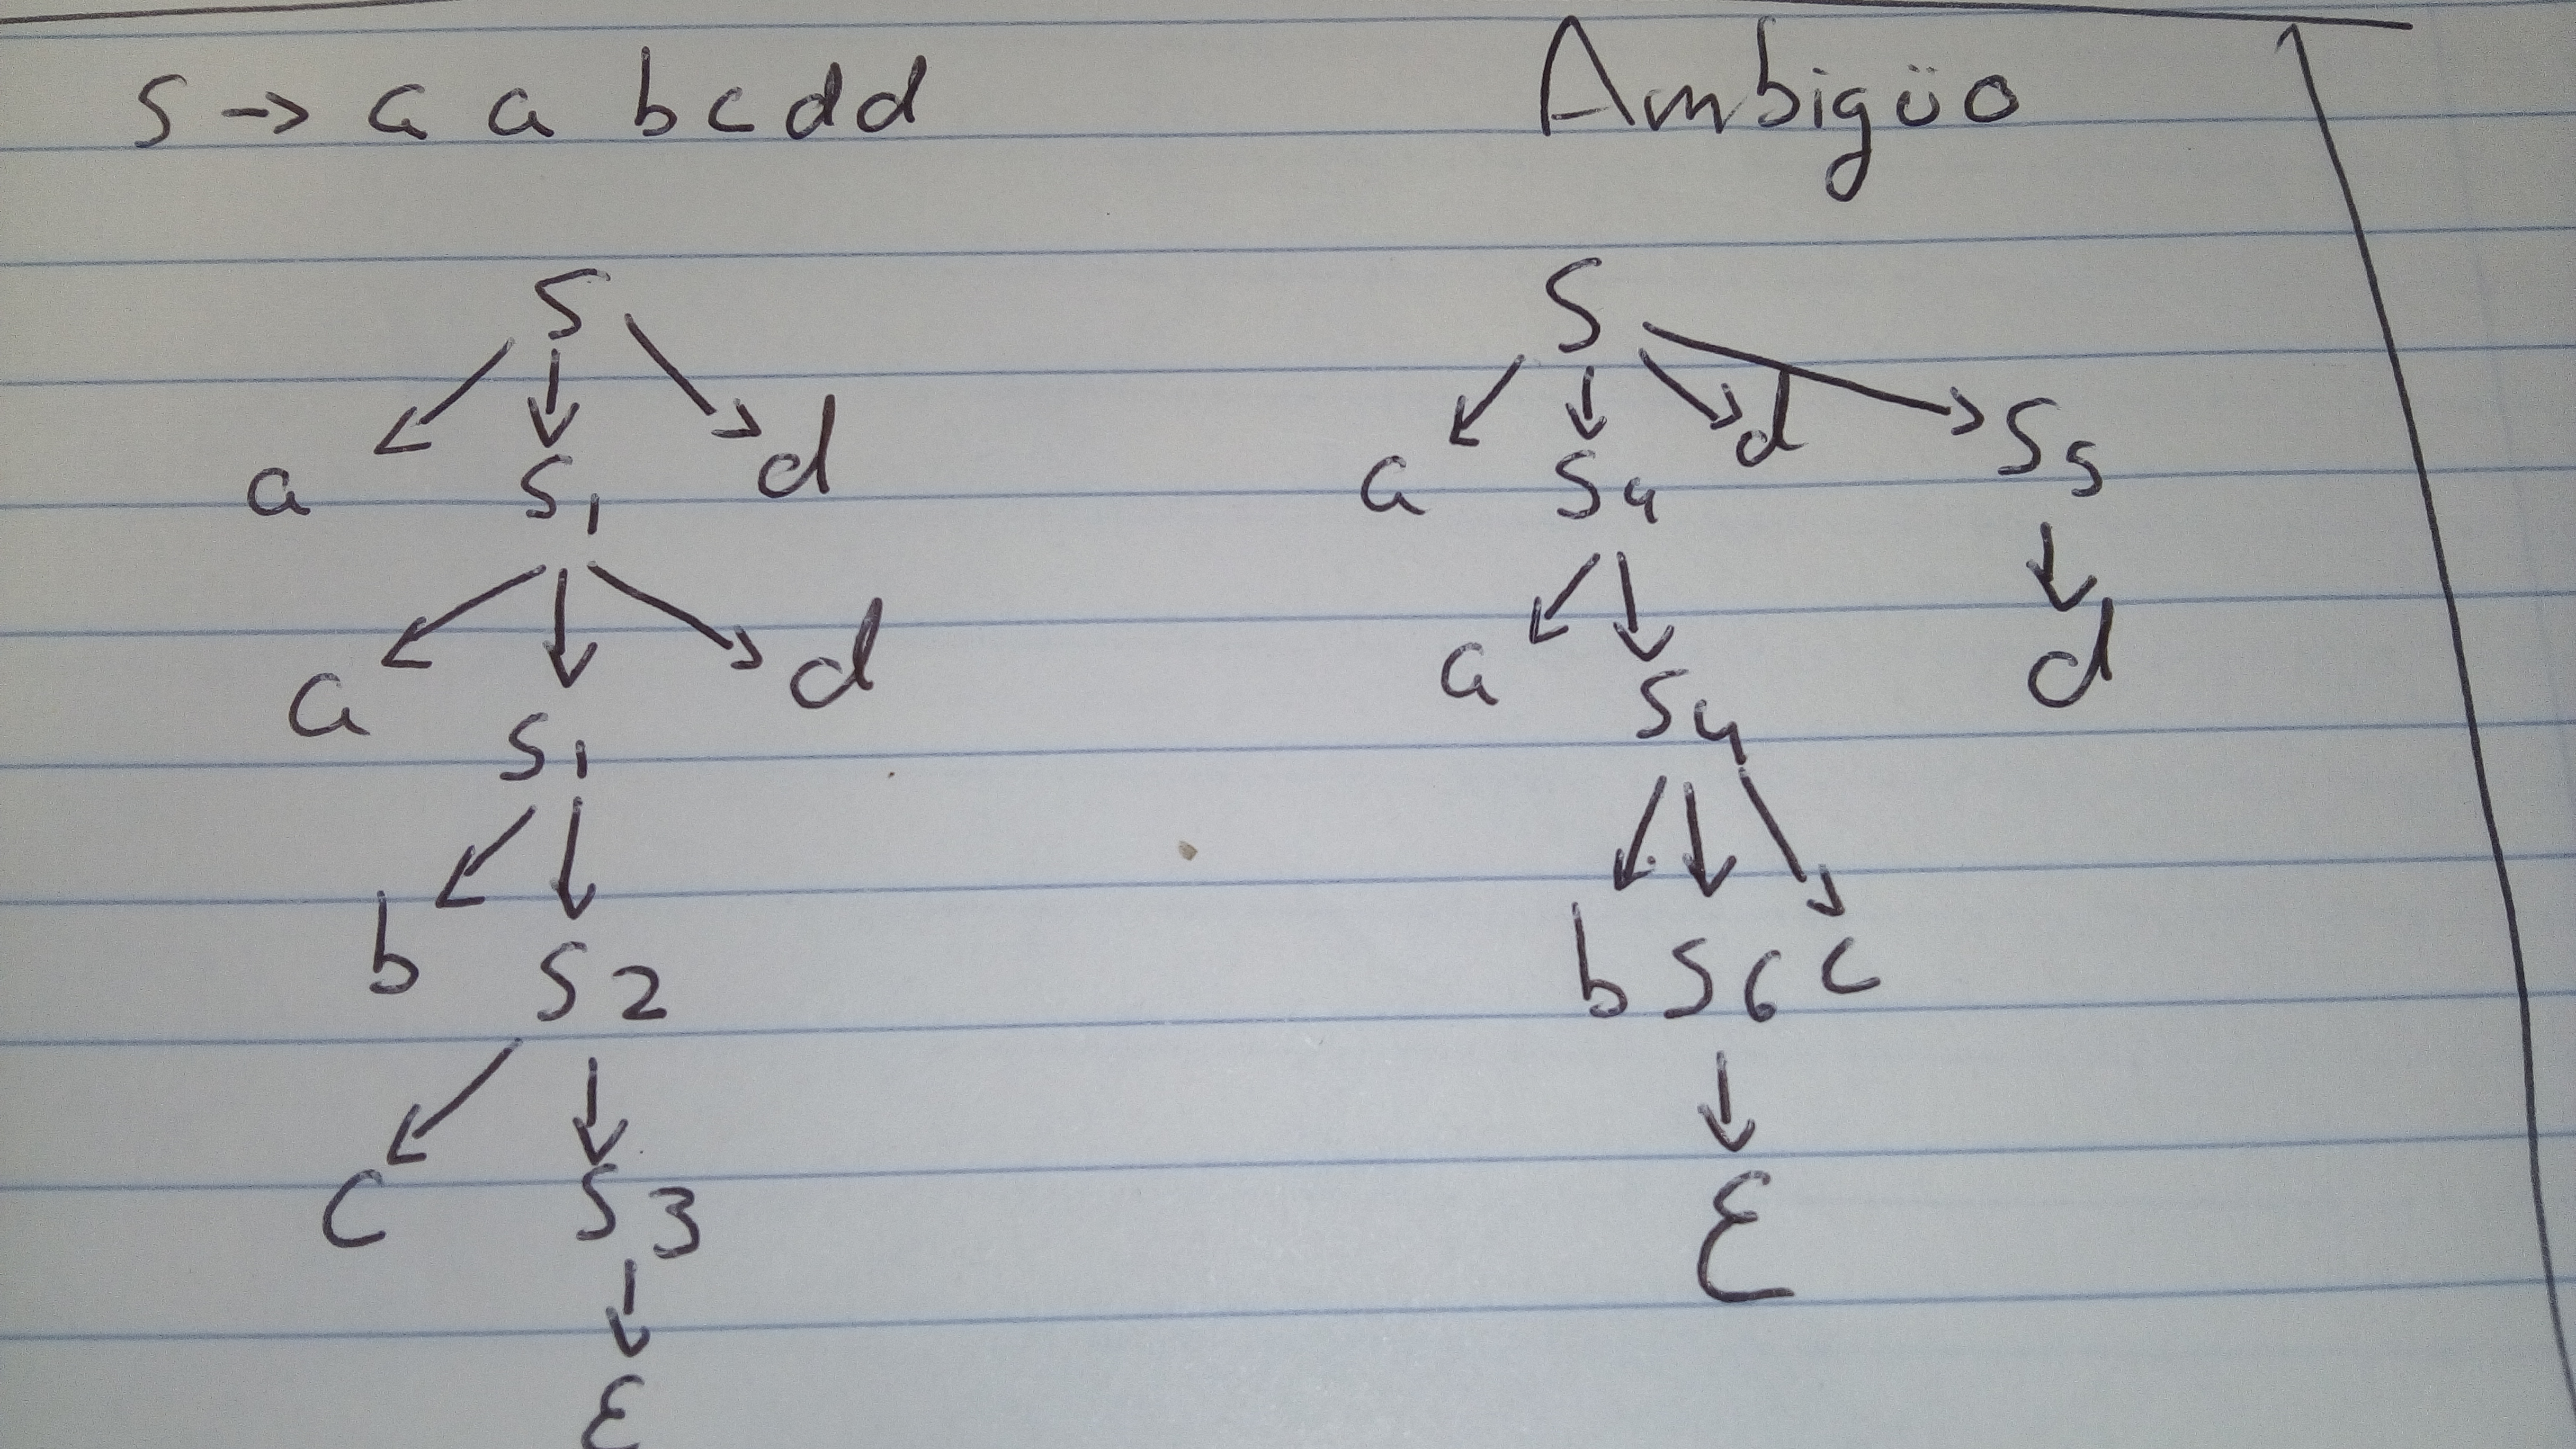 S → a a b c d d
Ambigüo
S
a S1 d
a S1 d
b S2
c S3
ε
S
a S4 d S5
a S4 d
b S6 c
ε